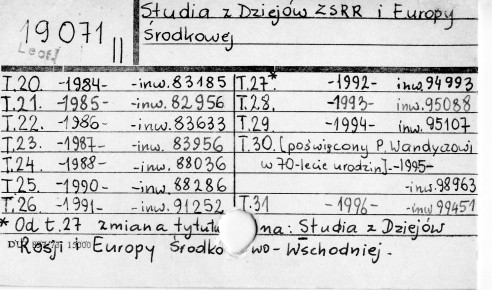 Studia z Dziejów ZSRR i Europy
Środkowej
19071 II
T.20. -1984- -inw. 83185
T.21. -1985- -inw. 82956
T.22. -1986- -inw. 83633
T.23. -1987- -inw. 83956
T.24 -1988- -inw. 88036
T.25. -1990- -inw. 88286
T.26. -1991- -inw. 91252
T.27.* -1992- inw. 94993
T.28. -1993- inw. 95088
T.29 -1994- inw. 95107
T.30. [poświęcony P. Wandyczowi
w 70-lecie urodzin]. -1995-
-inw. 98963
T.31 -1996- -inw 99451
* Od t.27 zmiana tytułu na: Studia z Dziejów
Rosji i Europy Środkowo-Wschodniej.